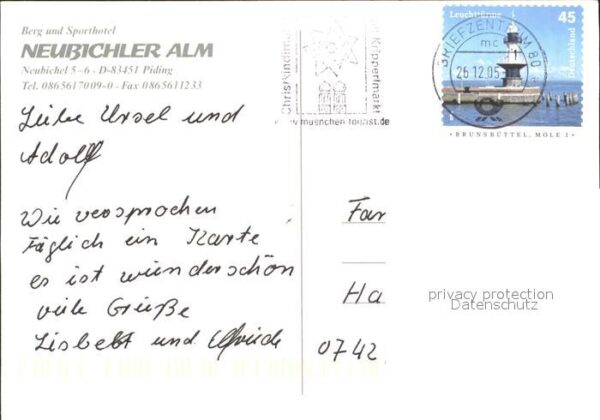 Berg und Sporthotel
NEUBICHLER ALM
Neubichel 5-6 · D-83451 Piding
Tel. 0865617009-0 - Fax 0865611233
Liebe Ursel und
Adolf
Wie versprochen
Täglich ein Karte
es ist wunderschön
viele Grüße
Lisbeth und
Christkindlmarkt
Kripperlmarkt
www.muenchen-tourist.de
BRIEFZENTRUM 80
mc
26.12.05
Leuchttürme
45
Deutschland
BRUNSBÜTTEL, MOLE 1
Fam
Ha
0742
privacy protection
Datenschutz